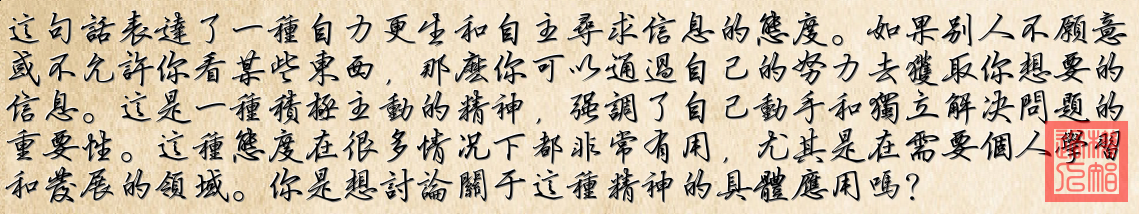 這句話表達了一種自力更生和自主尋求信息的態度。如果別人不願意
或不允許你看某些東西，那麼你可以通過自己的努力去獲取你想要的
信息。這是一種積極主動的精神，強調了自己動手和獨立解決問題的
重要性。這種態度在很多情況下都非常有用，尤其是在需要個人學習
和發展的領域。你是想討論關于這種精神的具體應用嗎？